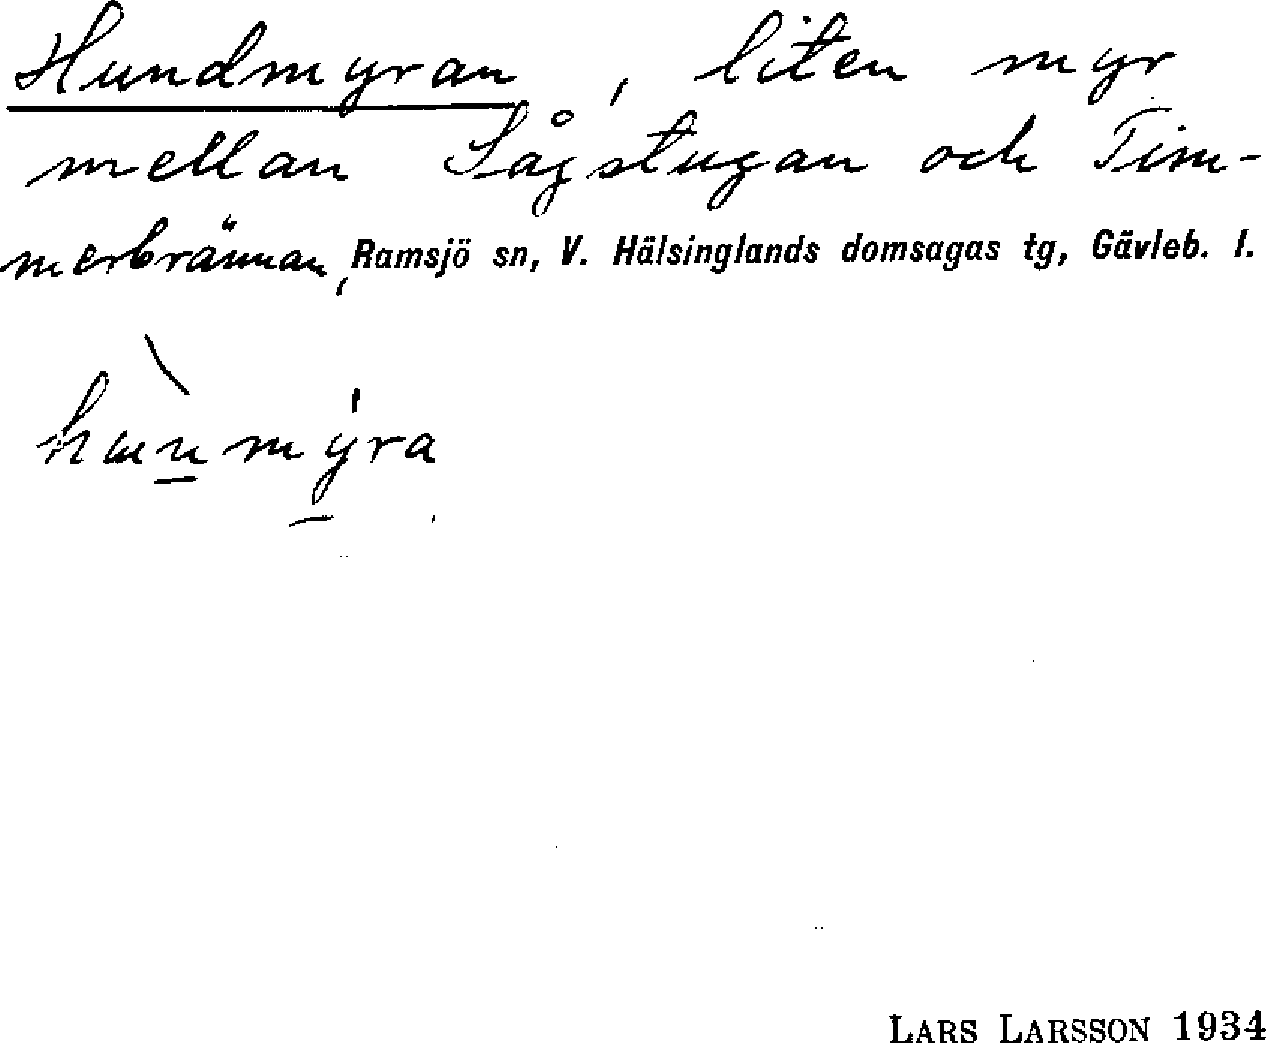 Hundmyran, liten myr
mellan Sågstugan och Tim-
merbrännan, Ramsjö sn, V. Hälsinglands domsagas tg, Gävleb. l.
LARS LARSSON 1934